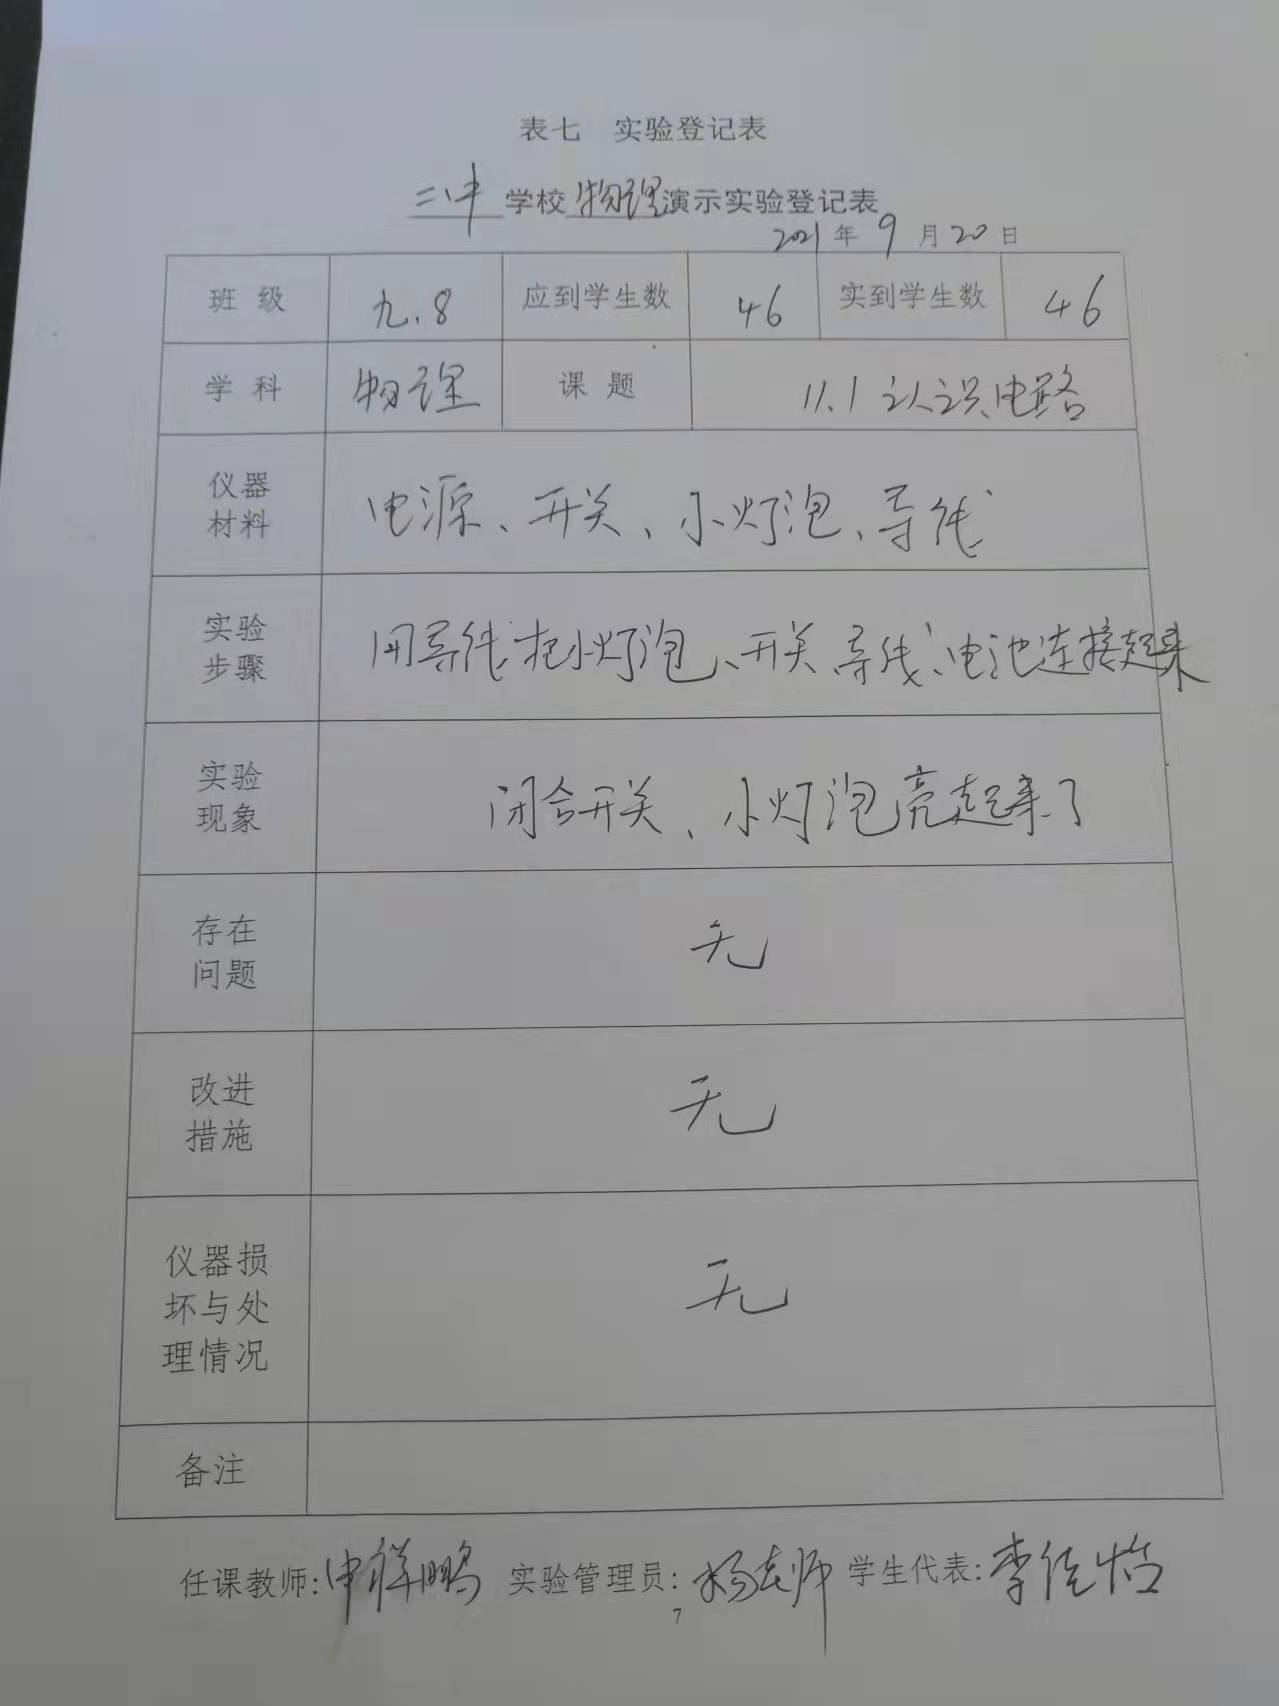 表七 实验登记表
二八中学校物理演示实验登记表
2021年9月20日
班级 九.8 应到学生数 46 实到学生数 46
学科 物理 课题 11.1认识电路
仪器
材料
电源、开关、小灯泡、导线
实验
步骤
用导线把小灯泡、开关、导线、电池连接起来
实验
现象
闭合开关、小灯泡亮起来了
存在
问题
无
改进
措施
无
仪器损
坏与处
理情况
无
备注
任课教师:申祥鹏 实验管理员:杨 师 学生代表:李佳
7